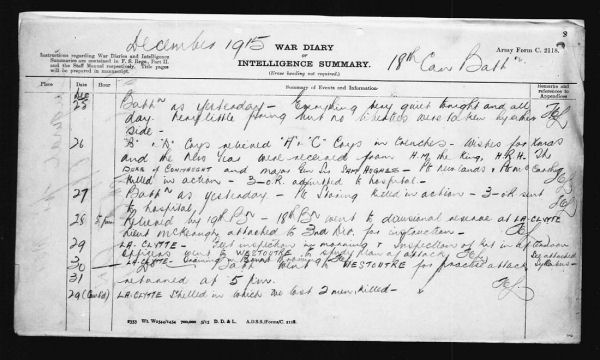 December 1915
WAR DIARY
8
Army Form C. 2118.
or
INTELLIGENCE SUMMARY.
18th Can Battn.
Instructions regarding War Diaries and Intelligence
Summaries are contained in F. S. Regs., Part II.
and the Staff Manual respectively. Title pages
will be prepared in manuscript.
(Erase heading not required).
Place Date Hour Summary of Events and Information Remarks and
references to
Appendices
Dec
25 Battn as yesterday - Everything very quiet tonight and all
day. Very little firing but no liberties were taken by either
side -
26 "B" Coys relieved "A" & "C" Coys in trenches - Wishes for Xmas
and the New Year were received from H.M. the King, H.R.H. The
DUKE of CONNAUGHT and Major Gen Sir SAM HUGHES - Pt Newlands & Pt
killed in action - 3 - O.R. admitted to hospital -
27 Battn as yesterday - Pt killed in action - 3 - O.R. sent
to hospital
28 5 pm Relieved by 19th Bn - 18th Bn went to divisional reserve at LA-CLYTTE
Lieut attached to 3rd for instruction -
29 LA-CLYTTE - inspection in morning & Inspection of
Officers went to WESTOUTRE to study plan of attack
30 LA-CLYTTE
Battn went WESTOUTRE for practice attack attached
31 returned at 5 pm.
29 (Cont'd) LA-CLYTTE shelled in which we lost 2 men, killed -
2353 Wt. W2544/1454 700,000 5/15 D. D. & L. A.D.S.S./Forms/C. 2118.